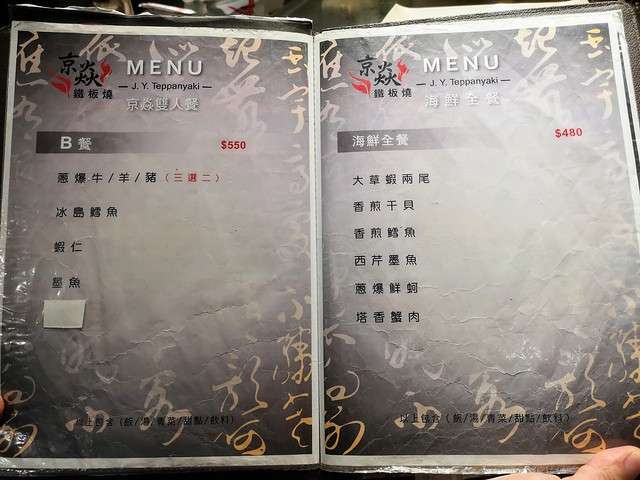 京焱
鐵板燒
MENU
— J. Y. Teppanyaki —
京焱雙人餐
B 餐 $550
蔥爆牛/羊/豬(三選二)
冰島鱈魚
蝦仁
墨魚
以上包含(飯/湯/青菜/甜點/飲料)
京焱
鐵板燒
MENU
— J. Y. Teppanyaki —
海鮮全餐
海鮮全餐 $480
大草蝦兩尾
香煎干貝
香煎鱈魚
西芹墨魚
蔥爆鮮蚵
塔香蟹肉
以上包含(飯/湯/青菜/甜點/飲料)